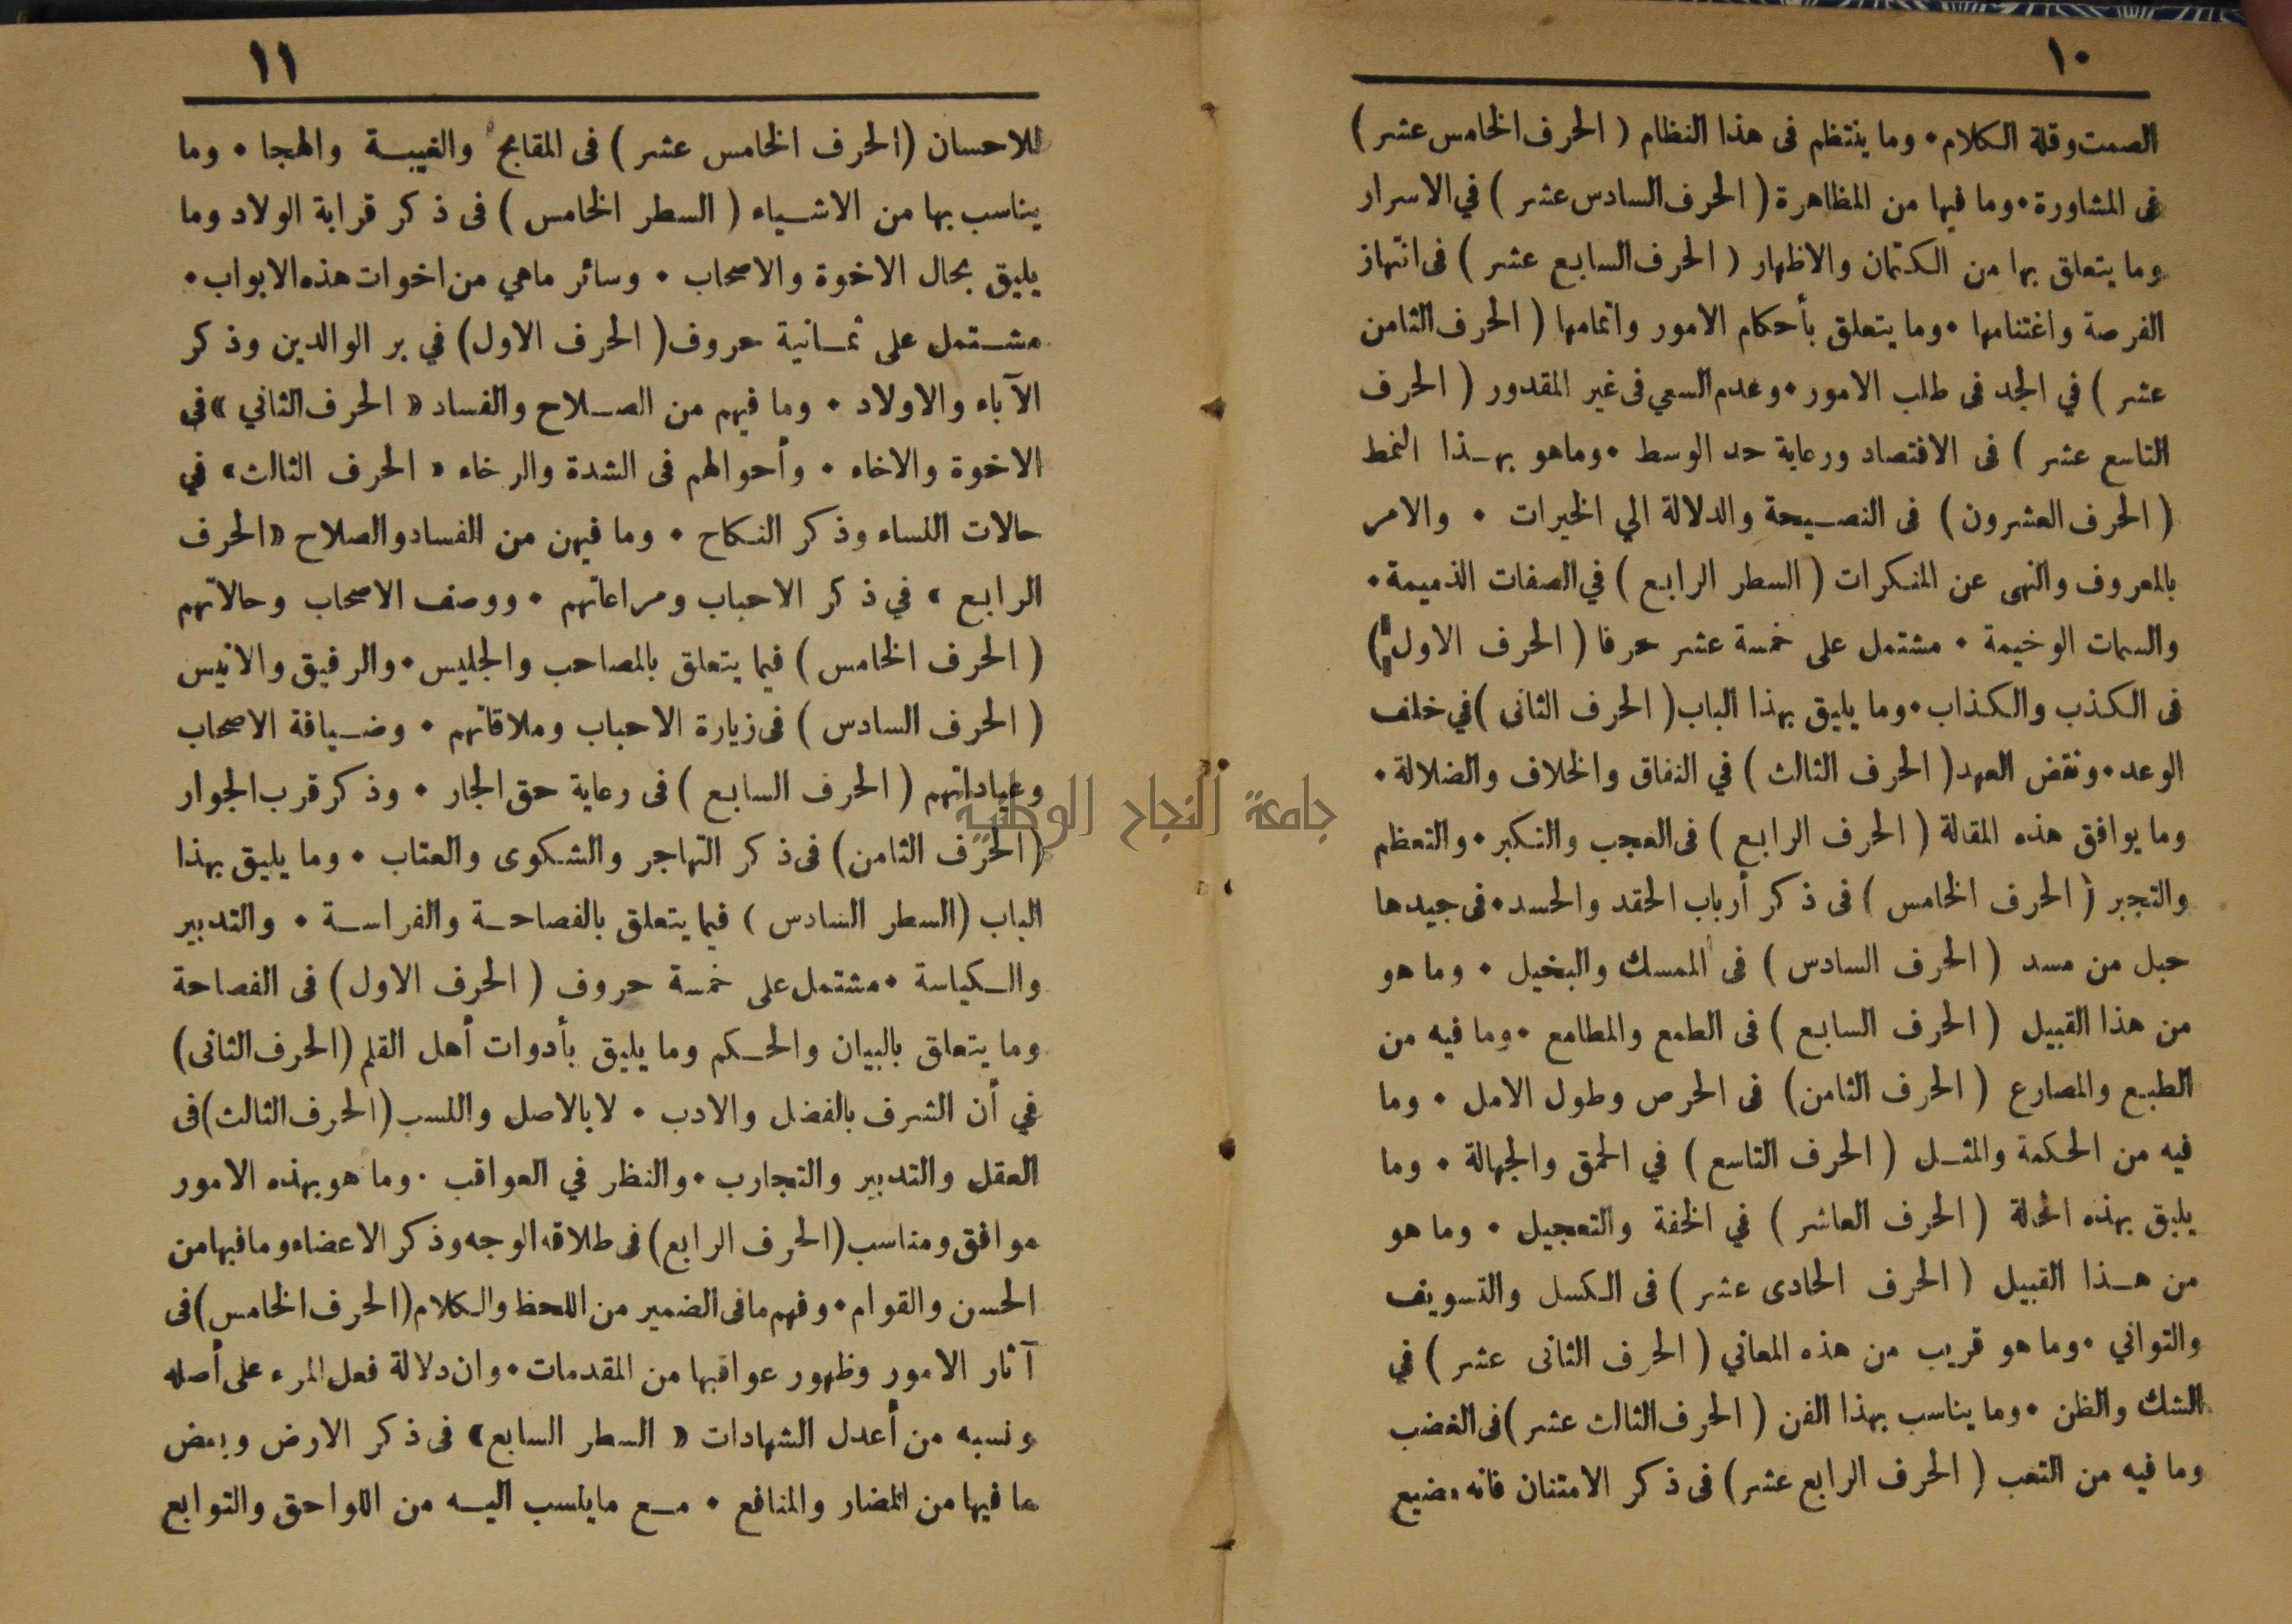 ١٠
الصمت وقلة الكلام • وما ينتظم فى هذا النظام ( الحرف الخامس عشر )
فى المشاورة • وما فيها من المظاهرة ( الحرف السادس عشر ) في الاسرار
وما يتعلق بها من الكتمان والاظهار ( الحرف السابع عشر ) فى انتهاز
الفرصة واغتنامها • وما يتعلق بأحكام الامور واتمامها ( الحرف الثامن
عشر ) في الجد فى طلب الامور • وعدم السعي فى غير المقدور ( الحرف
التاسع عشر ) فى الاقتصاد ورعاية حد الوسط • وماهو بهذا النمط
( الحرف العشرون ) فى النصيحة والدلالة الي الخيرات • والامر
بالمعروف والنهى عن المنكرات ( السطر الرابع ) في الصفات الذميمة •
والسمات الوخيمة • مشتمل على خمسة عشر حرفا ( الحرف الاول )
فى الكذب والكذاب • وما يليق بهذا الباب ( الحرف الثانى ) في خلف
الوعد • ونقض العهد ( الحرف الثالث ) في النفاق والخلاف والضلالة •
وما يوافق هذه المقالة ( الحرف الرابع ) فى العجب والتكبر • والتعظم
والتجبر ( الحرف الخامس ) فى ذكر أرباب الحقد والحسد • فى جيدها
حبل من مسد ( الحرف السادس ) فى الممسك والبخيل • وما هو
من هذا القبيل ( الحرف السابع ) فى الطمع والمطامع • وما فيه من
الطبع والمصارع ( الحرف الثامن ) فى الحرص وطول الامل • وما
فيه من الحكمة والمثل ( الحرف التاسع ) في الحمق والجهالة • وما
يليق بهذه الحالة ( الحرف العاشر ) في الخفة والتعجيل • وما هو
من هذا القبيل ( الحرف الحادى عشر ) فى الكسل والتسويف
والتواني • وما هو قريب من هذه المعاني ( الحرف الثانى عشر ) في
الشك والظن • وما يناسب بهذا الفن ( الحرف الثالث عشر ) فى الغضب
وما فيه من التعب ( الحرف الرابع عشر ) فى ذكر الامتنان فانه مضيع
١١
للاحسان ( الحرف الخامس عشر ) فى المقابح والغيبة والهجا • وما
يناسب بها من الاشياء ( السطر الخامس ) فى ذكر قرابة الولاد وما
يليق بحال الاخوة والاصحاب • وسائر ماهي من اخوات هذه الابواب •
مشتمل على ثمانية حروف ( الحرف الاول ) في بر الوالدين وذكر
الآباء والاولاد • وما فيهم من الصلاح والفساد « الحرف الثاني » فى
الاخوة والاخاء • وأحوالهم فى الشدة والرخاء « الحرف الثالث » في
حالات النساء وذكر النكاح • وما فيهن من الفساد والصلاح « الحرف
الرابع » في ذكر الاحباب ومراعاتهم • ووصف الاصحاب وحالاتهم
( الحرف الخامس ) فيما يتعلق بالمصاحب والجليس • والرفيق والانيس
( الحرف السادس ) فى زيارة الاحباب وملاقاتهم • وضيافة الاصحاب
وعياداتهم ( الحرف السابع ) فى رعاية حق الجار • وذكر قرب الجوار
( الحرف الثامن ) فى ذكر التهاجر والشكوى والعتاب • وما يليق بهذا
الباب ( السطر السادس ) فيما يتعلق بالفصاحة والفراسة • والتدبير
والكياسة • مشتمل على خمسة حروف ( الحرف الاول ) فى الفصاحة
وما يتعلق بالبيان والحكم وما يليق بأدوات أهل القلم ( الحرف الثانى )
في أن الشرف بالفضل والادب • لا بالاصل والنسب ( الحرف الثالث ) فى
العقل والتدبير والتجارب • والنظر في العواقب • وما هو بهذه الامور
موافق ومناسب ( الحرف الرابع ) فى طلاقه الوجه وذكر الاعضاء وما فيها من
الحسن والقوام • وفهم مافى الضمير من اللحظ والكلام ( الحرف الخامس ) فى
آثار الامور وظهور عواقبها من المقدمات • وان دلالة فعل المرء على أصله
ونسبه من أعدل الشهادات « السطر السابع » فى ذكر الارض وبعض
ما فيها من المضار والمنافع • مع ماينسب اليه من اللواحق والتوابع
جامعة النجاح الوطنية